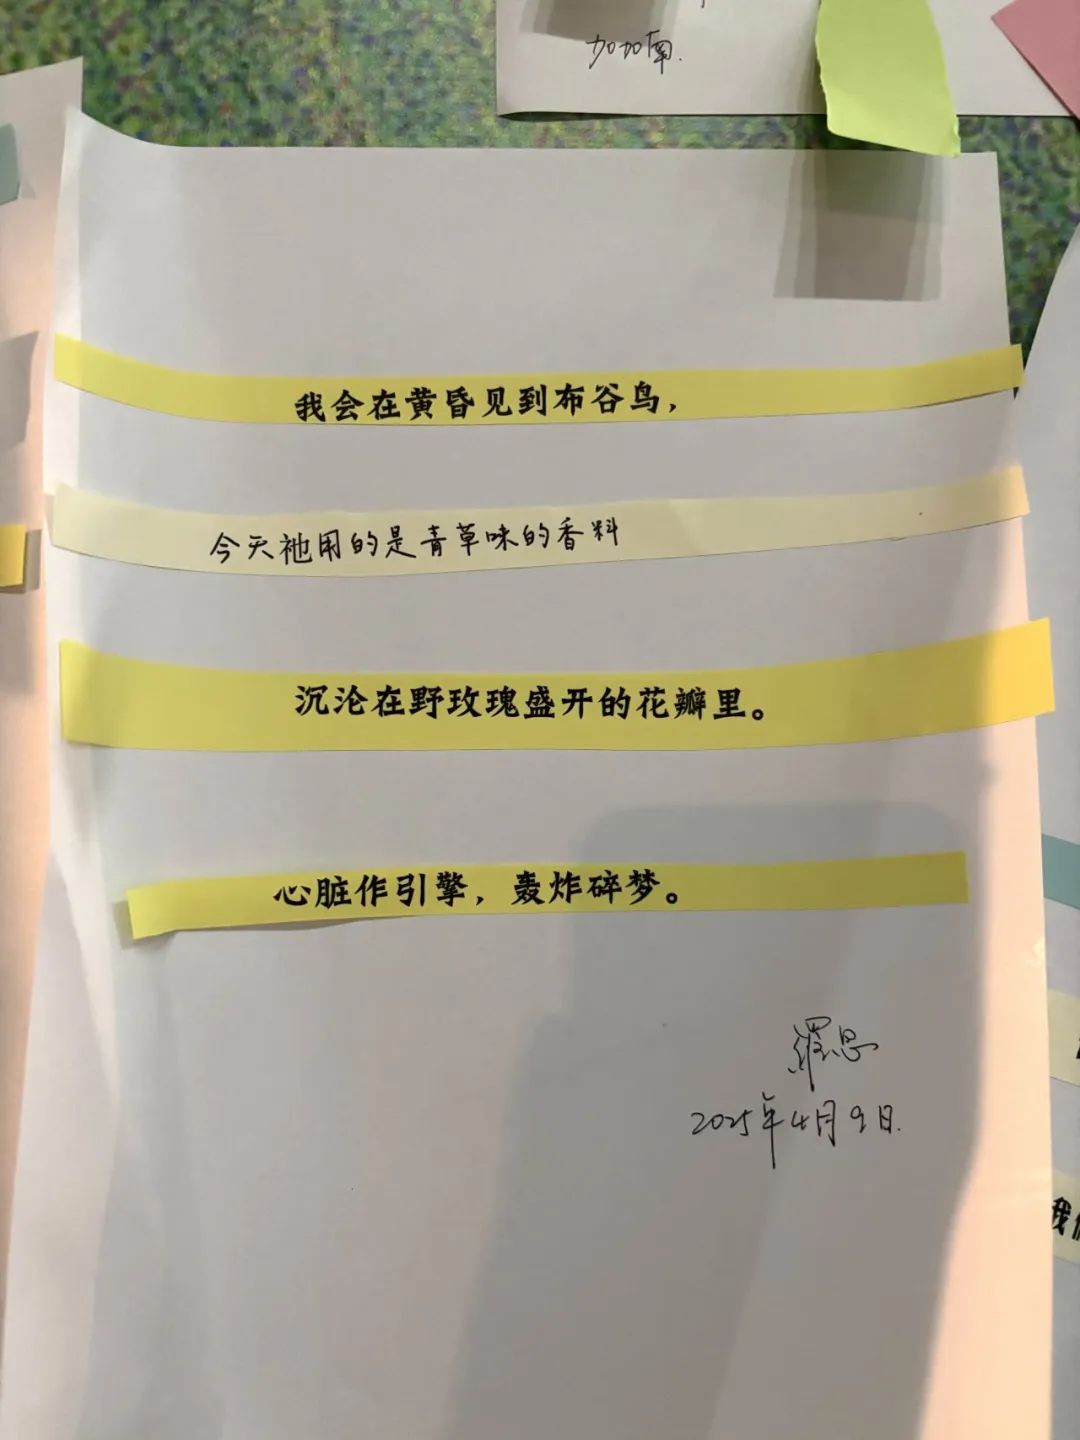 加加南.
我会在黄昏见到布谷鸟，
今天祂用的是青草味的香料
沉沦在野玫瑰盛开的花瓣里。
心脏作引擎，轰炸碎梦。
2025年4月9日.
我